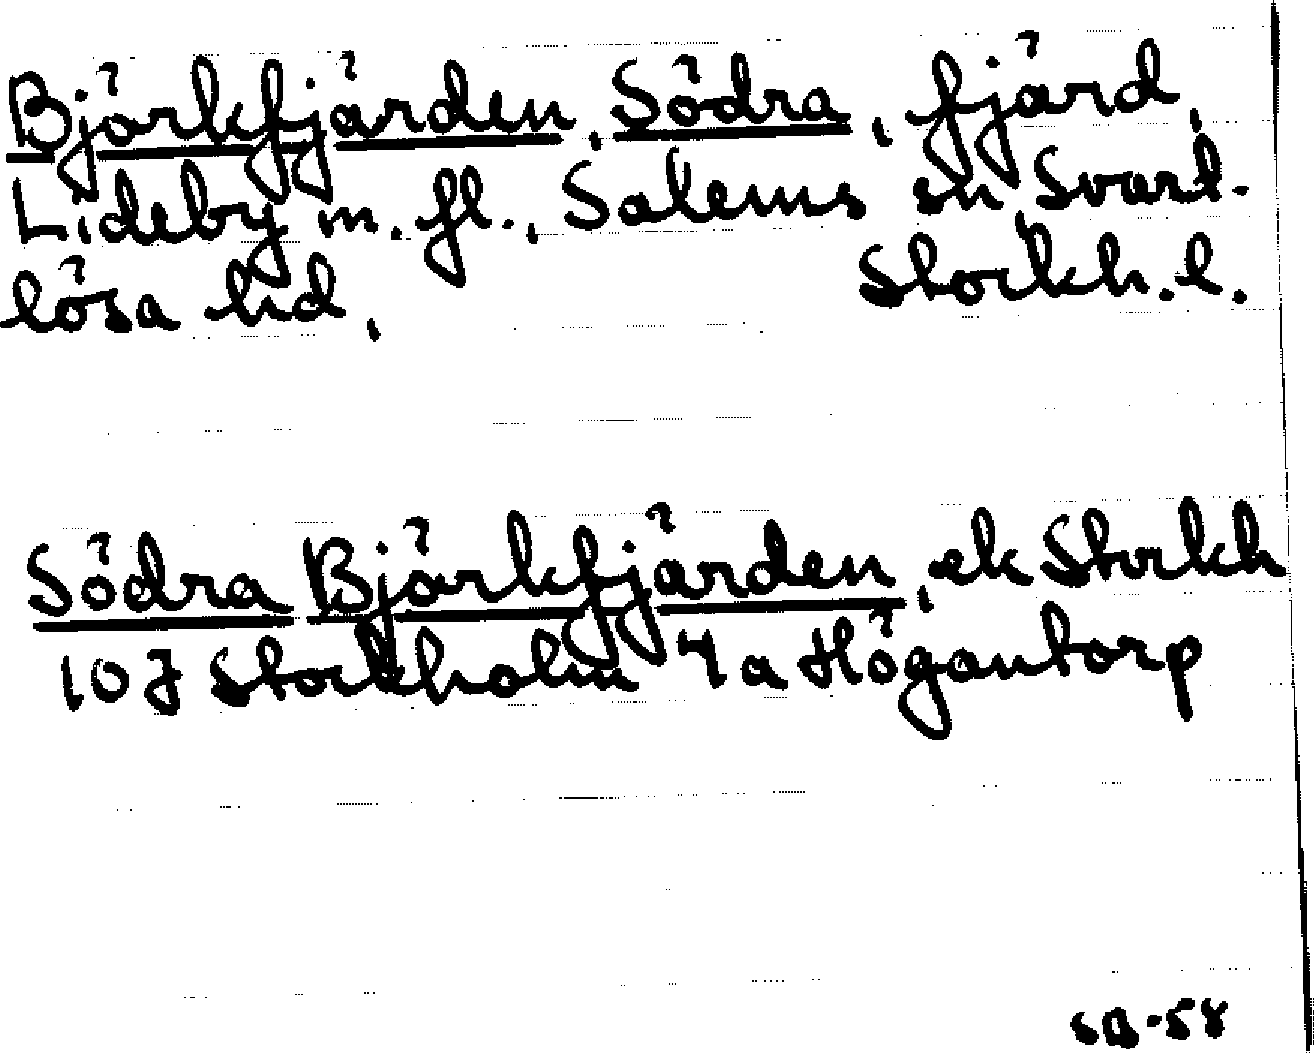 Björkfjärden, Södra, fjärd,
Lideby m. fl., Salems sn, Svart-
lösa hd, Stockh. l.
Södra Björkfjärden, ek Stockh
10J Stockholm 4a Högantorp
SB-58